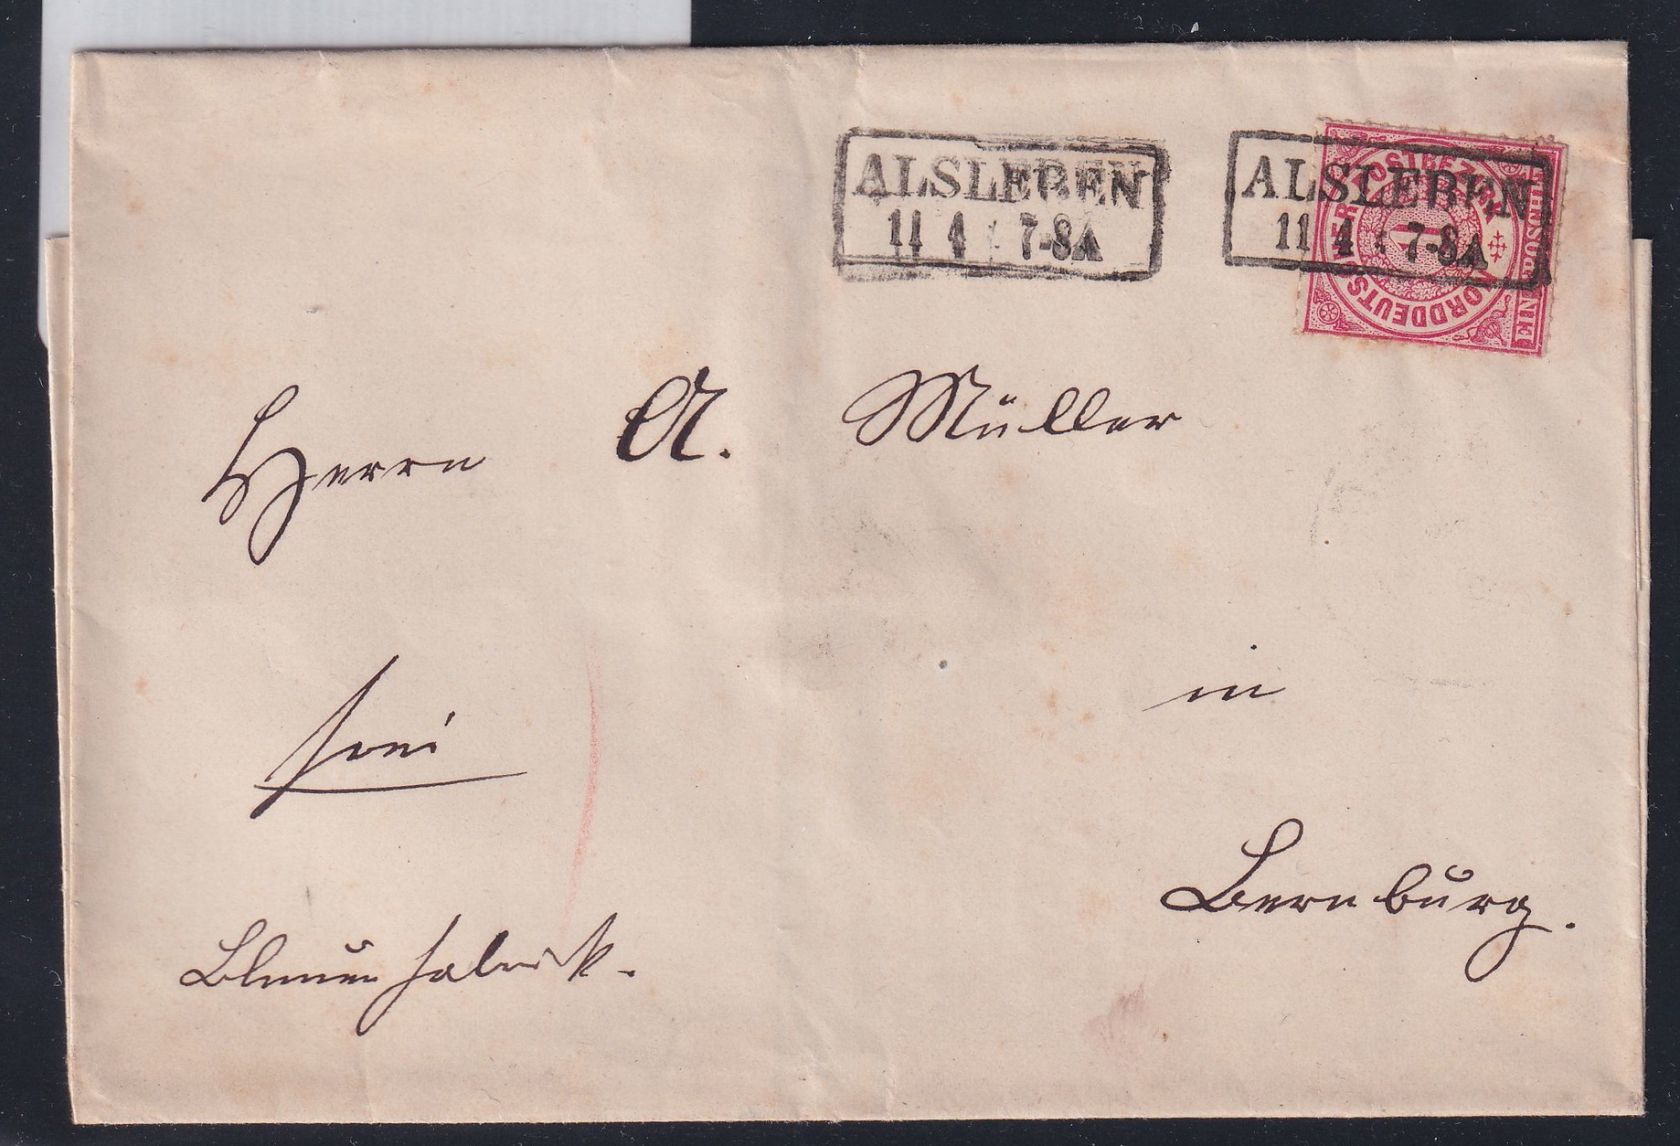 ALSLEBEN
11 4 7-8A
ALSLEBEN
11 4 7-8A
NORDDEUTSCHER POSTBEZIRK
1
Herrn A. Müller
frei
in
Bernburg.